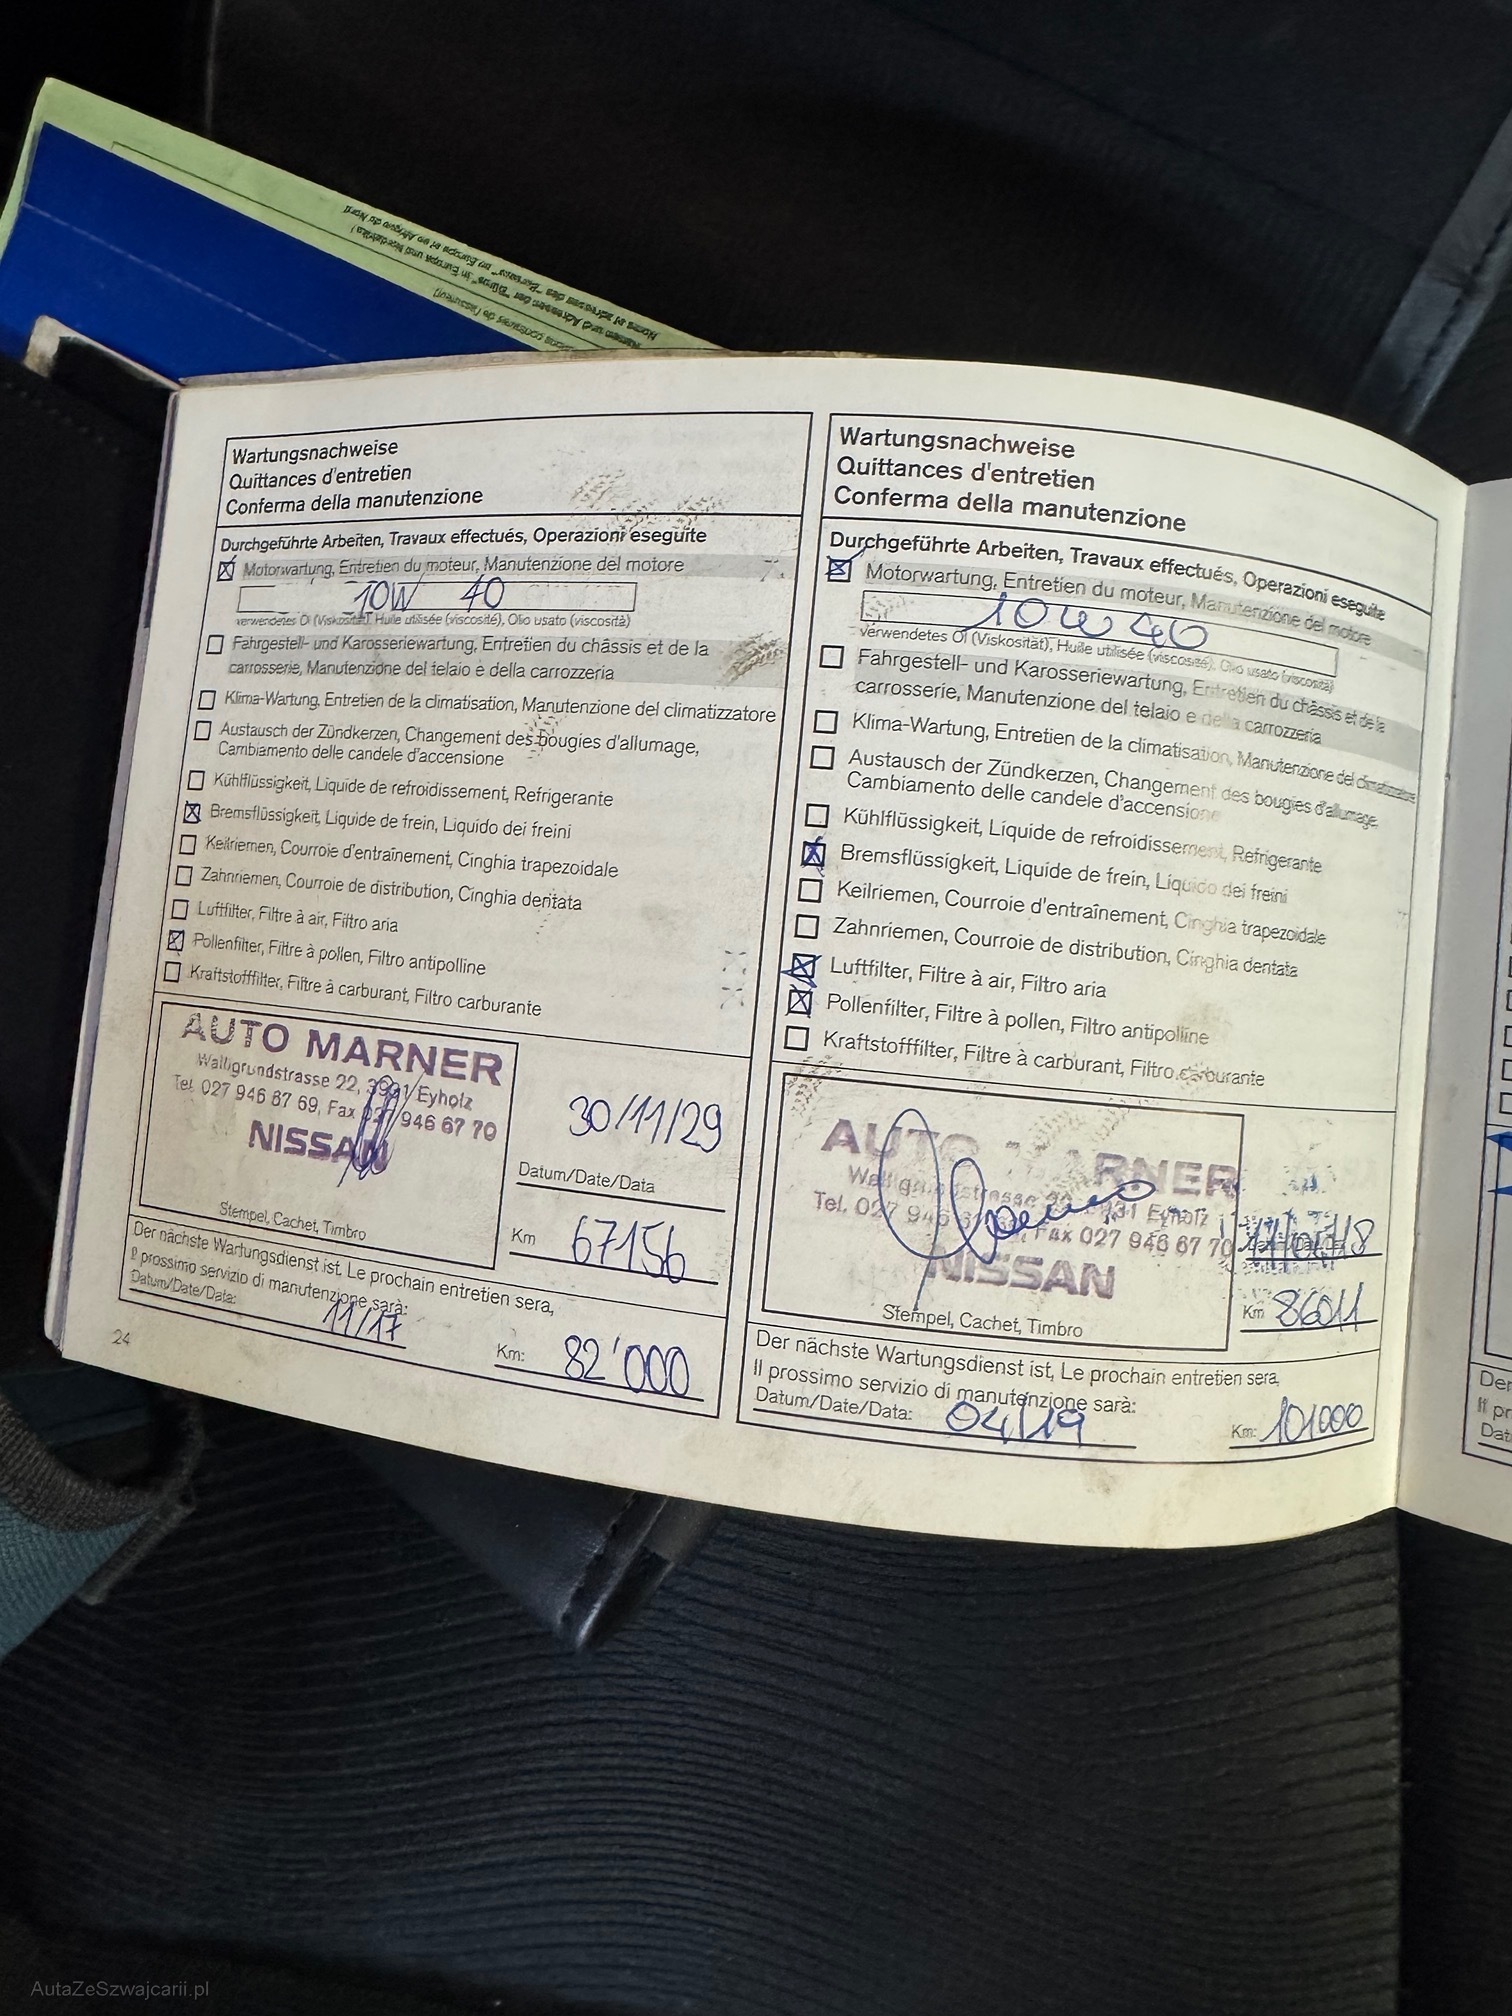 Wartungsnachweise
Quittances d'entretien
Conferma della manutenzione
Durchgeführte Arbeiten, Travaux effectués, Operazioni eseguite
Motorwartung, Entretien du moteur, Manutenzione del motore
10W 40
verwendetes Öl (Viskosität), Huile utilisée (viscosité), Olio usato (viscosità)
Fahrgestell- und Karosseriewartung, Entretien du châssis et de la
carrosserie, Manutenzione del telaio e della carrozzeria
Klima-Wartung, Entretien de la climatisation, Manutenzione del climatizzatore
Austausch der Zündkerzen, Changement des bougies d'allumage,
Cambiamento delle candele d'accensione
Kühlflüssigkeit, Liquide de refroidissement, Refrigerante
Bremsflüssigkeit, Liquide de frein, Liquido dei freini
Keilriemen, Courroie d'entraînement, Cinghia trapezoidale
Zahnriemen, Courroie de distribution, Cinghia dentata
Luftfilter, Filtre à air, Filtro aria
Pollenfilter, Filtre à pollen, Filtro antipolline
Kraftstofffilter, Filtre à carburant, Filtro carburante
AUTO MARNER
Walligrundstrasse 22, 3931 Eyholz
Tel. 027 946 67 69, Fax 027 946 67 70
NISSAN
Stempel, Cachet, Timbro
30/11/29
Datum/Date/Data
Km 67156
Der nächste Wartungsdienst ist, Le prochain entretien sera,
Il prossimo servizio di manutenzione sarà:
Datum/Date/Data: 11/17
Km: 82'000
24
Wartungsnachweise
Quittances d'entretien
Conferma della manutenzione
Durchgeführte Arbeiten, Travaux effectués, Operazioni eseguite
Motorwartung, Entretien du moteur, Manutenzione del motore
10W 40
verwendetes Öl (Viskosität), Huile utilisée (viscosité), Olio usato (viscosità)
Fahrgestell- und Karosseriewartung, Entretien du châssis et de la
carrosserie, Manutenzione del telaio e della carrozzeria
Klima-Wartung, Entretien de la climatisation, Manutenzione del climatizzatore
Austausch der Zündkerzen, Changement des bougies d'allumage,
Cambiamento delle candele d'accensione
Kühlflüssigkeit, Liquide de refroidissement, Refrigerante
Bremsflüssigkeit, Liquide de frein, Liquido dei freini
Keilriemen, Courroie d'entraînement, Cinghia trapezoidale
Zahnriemen, Courroie de distribution, Cinghia dentata
Luftfilter, Filtre à air, Filtro aria
Pollenfilter, Filtre à pollen, Filtro antipolline
Kraftstofffilter, Filtre à carburant, Filtro carburante
AUTO MARNER
Walligrundstrasse 3931 Eyholz
Tel. 027 946 Fax 027 946 67 70
NISSAN
Stempel, Cachet, Timbro
Km 86011
Der nächste Wartungsdienst ist, Le prochain entretien sera,
Il prossimo servizio di manutenzione sarà:
Datum/Date/Data: 04/19
Km: 101000
AutaZeSzwajcarii.pl